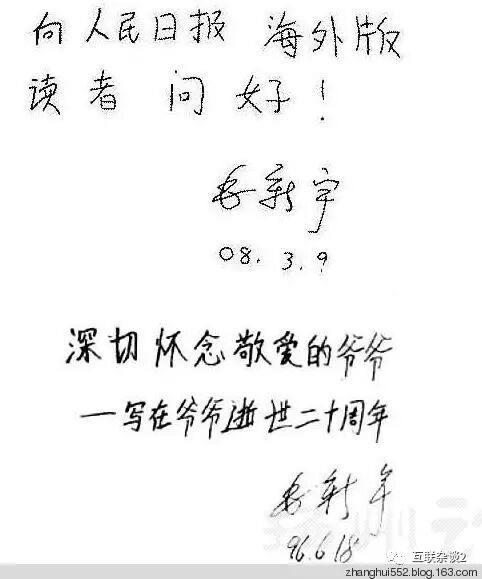 向人民日报 海外版
读者 问 好！
毛新宇
08.3.9
深切怀念敬爱的爷爷
—写在爷爷逝世二十周年
毛新宇
96.6.18
互联杂谈2
zhanghui552.blog.163.com